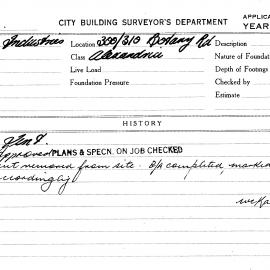 CITY BUILDING SURVEYOR'S DEPARTMENT
APPLICA
YEAR
Industries Location 300/310 Botany Rd Description
Class Alexandria Nature of Foundat
Live Load Depth of Footings
Foundation Pressure Checked by
Estimate
HISTORY
Approved PLANS & SPECN. ON JOB CHECKED
removed from site. B/A completed, marked
accordingly